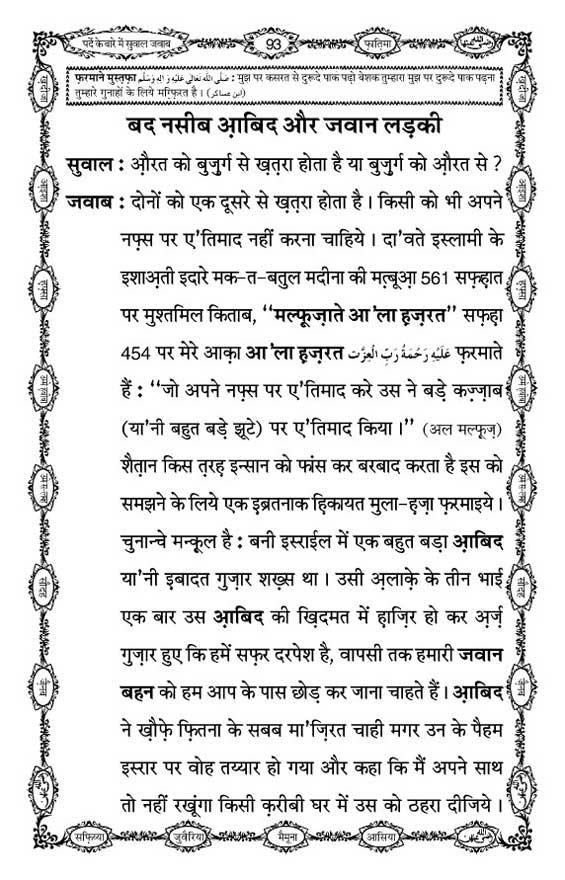 पर्दे के बारे में सुवाल जवाब
93
फ़ातिमा
फ़रमाने मुस्तफ़ा صَلَّى اللهُ تَعَالٰى عَلَيْهِ وَاٰلِهٖ وَسَلَّم : मुझ पर कसरत से दुरूदे पाक पढ़ो बेशक तुम्हारा मुझ पर दुरूदे पाक पढ़ना
तुम्हारे गुनाहों के लिये मग़्फ़िरत है। (ابن عساكر)
बद नसीब आ़बिद और जवान लड़की
सुवाल : औ़रत को बुज़ुर्ग से ख़त़रा होता है या बुज़ुर्ग को औ़रत से ?
जवाब : दोनों को एक दूसरे से ख़त़रा होता है। किसी को भी अपने
नफ़्स पर ए'तिमाद नहीं करना चाहिये। दा'वते इस्लामी के
इशाअ़ती इदारे मक-त-बतुल मदीना की मत़्बूआ़ 561 सफ़ह़ात
पर मुश्तमिल किताब, ‘‘मल्फ़ूज़ाते आ'ला ह़ज़रत’’ सफ़ह़ा
454 पर मेरे आक़ा आ'ला ह़ज़रत عَلَيْهِ رَحْمَةُ رَبِّ الْعِزَّت फ़रमाते
हैं : ‘‘जो अपने नफ़्स पर ए'तिमाद करे उस ने बड़े कज़्ज़ाब
(या'नी बहुत बड़े झूटे) पर ए'तिमाद किया।’’ (अल मल्फ़ूज़)
शैत़ान किस त़रह़ इन्सान को फांस कर बरबाद करता है इस को
समझने के लिये एक इ़ब्रतनाक ह़िकायत मुला-ह़ज़ा फ़रमाइये।
चुनान्चे मन्क़ूल है : बनी इस्राईल में एक बहुत बड़ा आ़बिद
या'नी इ़बादत गुज़ार शख़्स था। उसी अ़लाक़े के तीन भाई
एक बार उस आ़बिद की ख़िदमत में ह़ाज़िर हो कर अ़र्ज़
गुज़ार हुए कि हमें सफ़र दरपेश है, वापसी तक हमारी जवान
बहन को हम आप के पास छोड़ कर जाना चाहते हैं। आ़बिद
ने ख़ौफ़े फ़ितना के सबब मा'ज़िरत चाही मगर उन के पैहम
इस्रार पर वोह तय्यार हो गया और कहा कि मैं अपने साथ
तो नहीं रखूंगा किसी क़रीबी घर में उस को ठहरा दीजिये।
सफ़िय्या
जुवैरिया
मैमूना
आसिया